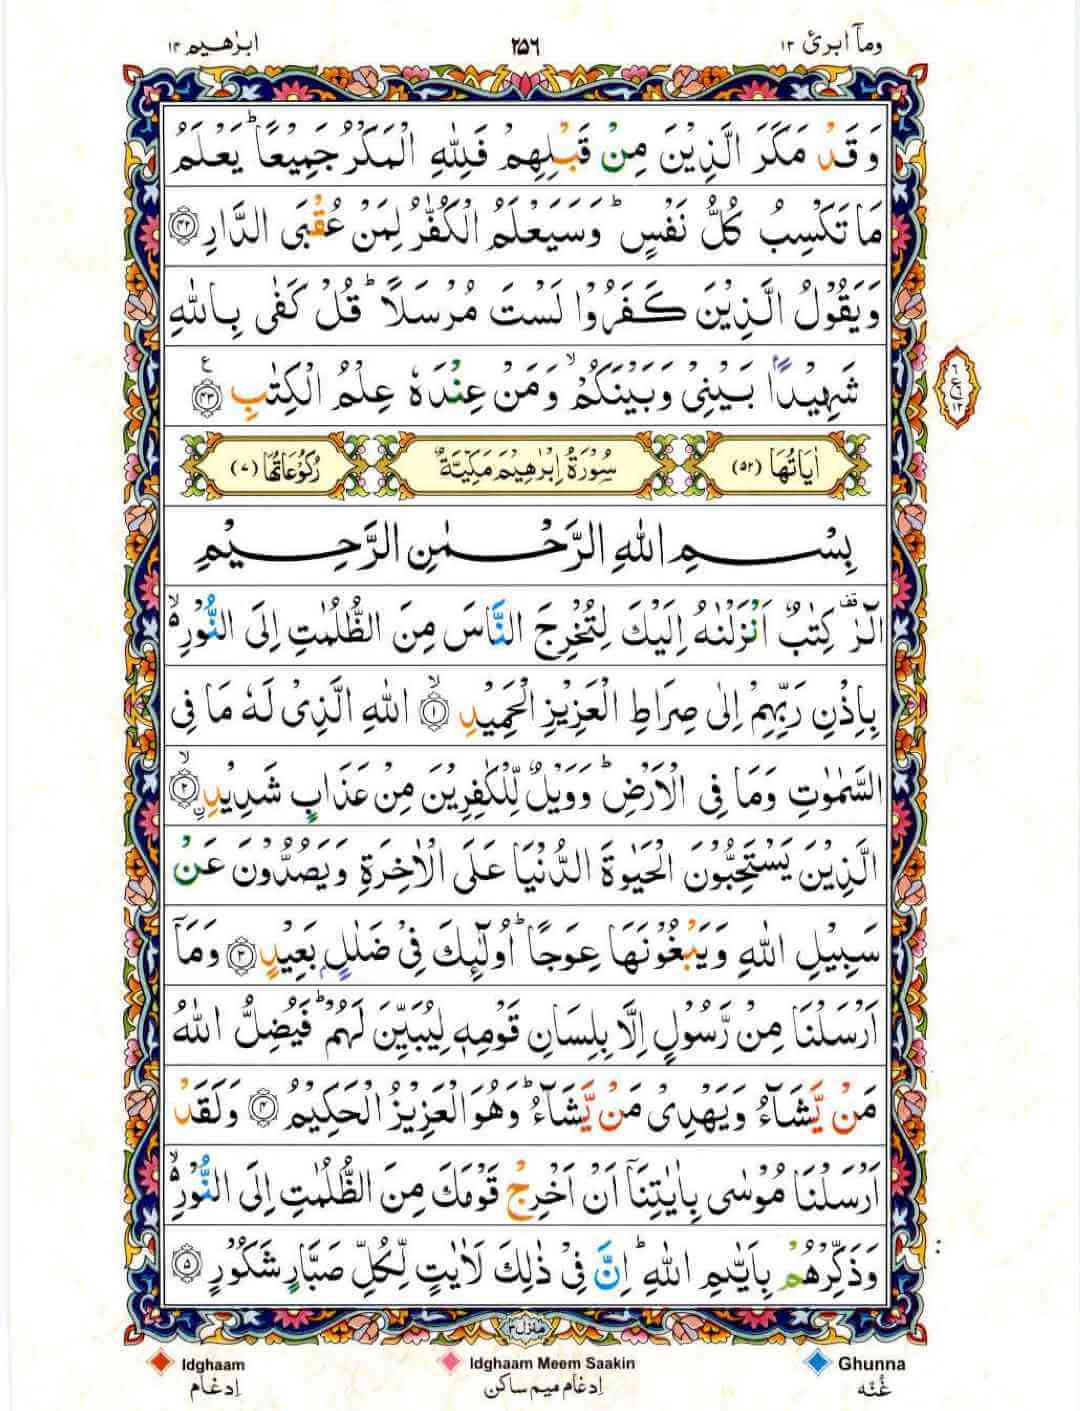 ابرٰهيم ١٤ ٢٥٦ ومآ ابرئ ١٣
وَقَدْ مَكَرَ الَّذِيْنَ مِنْ قَبْلِهِمْ فَلِلّٰهِ الْمَكْرُ جَمِيْعًا ؕ يَعْلَمُ
مَا تَكْسِبُ كُلُّ نَفْسٍ ؕ وَسَيَعْلَمُ الْكُفّٰرُ لِمَنْ عُقْبَى الدَّارِ ﴿۴۲﴾
وَيَقُوْلُ الَّذِيْنَ كَفَرُوْا لَسْتَ مُرْسَلًا ؕ قُلْ كَفٰى بِاللّٰهِ
شَهِيْدًۢا بَيْنِيْ وَبَيْنَكُمْ ۙ وَمَنْ عِنْدَهٗ عِلْمُ الْكِتٰبِ ﴿۴۳﴾ ع
٦
ع
١٢
اٰيَاتُهَا (٥٢) سُوْرَةُ اِبْرٰهِيْمَ مَكِّيَّةٌ رُكُوْعَاتُهَا (٧)
بِسْمِ اللّٰهِ الرَّحْمٰنِ الرَّحِيْمِ
الٓرٰ ۟ كِتٰبٌ اَنْزَلْنٰهُ اِلَيْكَ لِتُخْرِجَ النَّاسَ مِنَ الظُّلُمٰتِ اِلَى النُّوْرِ ۙ۬
بِاِذْنِ رَبِّهِمْ اِلٰى صِرَاطِ الْعَزِيْزِ الْحَمِيْدِ ۙ﴿۱﴾ اللّٰهِ الَّذِيْ لَهٗ مَا فِى
السَّمٰوٰتِ وَمَا فِى الْاَرْضِ ؕ وَوَيْلٌ لِّلْكٰفِرِيْنَ مِنْ عَذَابٍ شَدِيْدِ ۙ﴿۲﴾ ن
الَّذِيْنَ يَسْتَحِبُّوْنَ الْحَيٰوةَ الدُّنْيَا عَلَى الْاٰخِرَةِ وَيَصُدُّوْنَ عَنْ
سَبِيْلِ اللّٰهِ وَيَبْغُوْنَهَا عِوَجًا ؕ اُولٰٓئِكَ فِيْ ضَلٰلٍۢ بَعِيْدٍ ﴿۳﴾ وَمَآ
اَرْسَلْنَا مِنْ رَّسُوْلٍ اِلَّا بِلِسَانِ قَوْمِهٖ لِيُبَيِّنَ لَهُمْ ؕ فَيُضِلُّ اللّٰهُ
مَنْ يَّشَآءُ وَيَهْدِيْ مَنْ يَّشَآءُ ؕ وَهُوَ الْعَزِيْزُ الْحَكِيْمُ ﴿۴﴾ وَلَقَدْ
اَرْسَلْنَا مُوْسٰى بِاٰيٰتِنَآ اَنْ اَخْرِجْ قَوْمَكَ مِنَ الظُّلُمٰتِ اِلَى النُّوْرِ ۙ۬
وَذَكِّرْهُمْ بِاَيّٰىمِ اللّٰهِ ؕ اِنَّ فِيْ ذٰلِكَ لَاٰيٰتٍ لِّكُلِّ صَبَّارٍ شَكُوْرٍ ﴿۵﴾
منزل ۳
Idghaam Idghaam Meem Saakin Ghunna
اِدغام اِدغام میم ساکن غُنّه